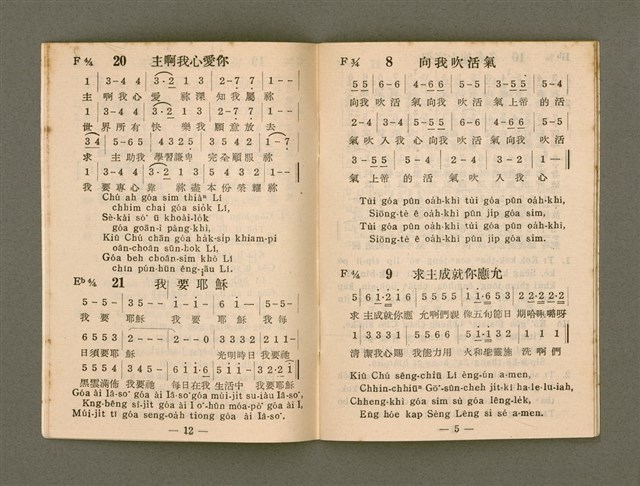 F 4/4 20 主啊我心愛你
1 | 3-4 4 | 3·2 1 3 | 2-7 7 | 1--|
主 啊我心 愛 祢深 知我屬 祢
1 | 3-4 4 | 3·2 1 3 | 2-7 7 | 1--|
世 界所有 快 樂我 願意放 去
3 4 | 5-6 5 | 4 3 2 5 | 3 5 4 2 | 1-7
求 主助我 學習謙卑 完全順服 祢
1 | 3-4 4 | 3·2 1 3 | 5 4 2 1 3 2 | 1--
我 要專心 靠 祢盡本份榮耀祢
Chú ah góa sim thiàⁿ Lí,
chhim chai góa siók Lí,
Sè-kài só͘ ū khoài-lók
góa goān-ì pàng-khì,
Kiû Chú chān góa hák-síp khiam-pi
oân-choân sūn-hók Lí,
Góa beh choān-sim khò Lí
chīn pún-hūn êng-iāu Lí.
E♭ 4/4 21 我要耶穌
5-5- | 3 5-- | 1-1- | 6 1-- | 5-5-
我 要 耶穌 我 要 耶穌 我 每
6 5 5 3 | 2--- | 2--0 | 3 3 2 2 | 1---
日須要耶 穌 光明時日 我要祂
5 5 5 4 | 3 4 5- | 6 1 6 1 | 5 1 1 3 | 3 2·2 1 1 |
黑雲滿佈 我要祂 每日在我 生活中 我要耶穌
Góa ài Iâ-so͘ góa ài Iâ-so͘ góa múi-jít su-iàu Iâ-so͘,
Kng-bêng sî-jít góa ài I o͘-hûn móa-pò͘ góa ài I,
Múi-jít tī góa seng-oáh tiong góa ài Iâ-so͘,
— 12 —
F 3/4 8 向我吹活氣
5 5 | 6-6 | 4-6 6 | 5-5 | 3-5 5 | 5-4
向我 吹活 氣向我 吹活 氣上帝 的活
2-4 | 3-4 | 5-5 5 | 6-6 | 4-6 6 | 5-5
氣吹入我心向我 吹活 氣向我 吹活
3-5 5 | 5-4 | 2-4 | 3-2 | 1--
氣上帝的活 氣吹 入我 心
Tùi góa pûn oáh-khì tùi góa pûn oáh-khì,
Siōng-tè ê oáh-khì pûn jíp góa sim,
Tùi góa pûn oáh-khì tùi góa pûn oáh-khì,
Siōng-tè ê oáh-khì pûn jíp góa sim.
F 4/4 9 求主成就你應允
5 | 6 1·2 1 6 | 5 5 5 5 | 1 1·6 5 3 | 2 2·2 2·2 2
求 主成就你應 允啊們親 像五旬節日 期哈唎路呀
1 | 3 3 3 1 | 5 5 5 6 | 5 1·1 3 2 | 1 1 1
清 潔我心賜 我能力用 火和聖靈施 洗啊們
Kiû Chú sêng-chiū Lí èng-ún a-men,
Chhin-chhiūⁿ Gō͘-sûn-cheh jít-kî ha-le-lu-iah,
Chheng-khì góa sim sù góa lêng-lék,
Ēng hóe kap Sèng Lêng si sé a-men.
— 5 —